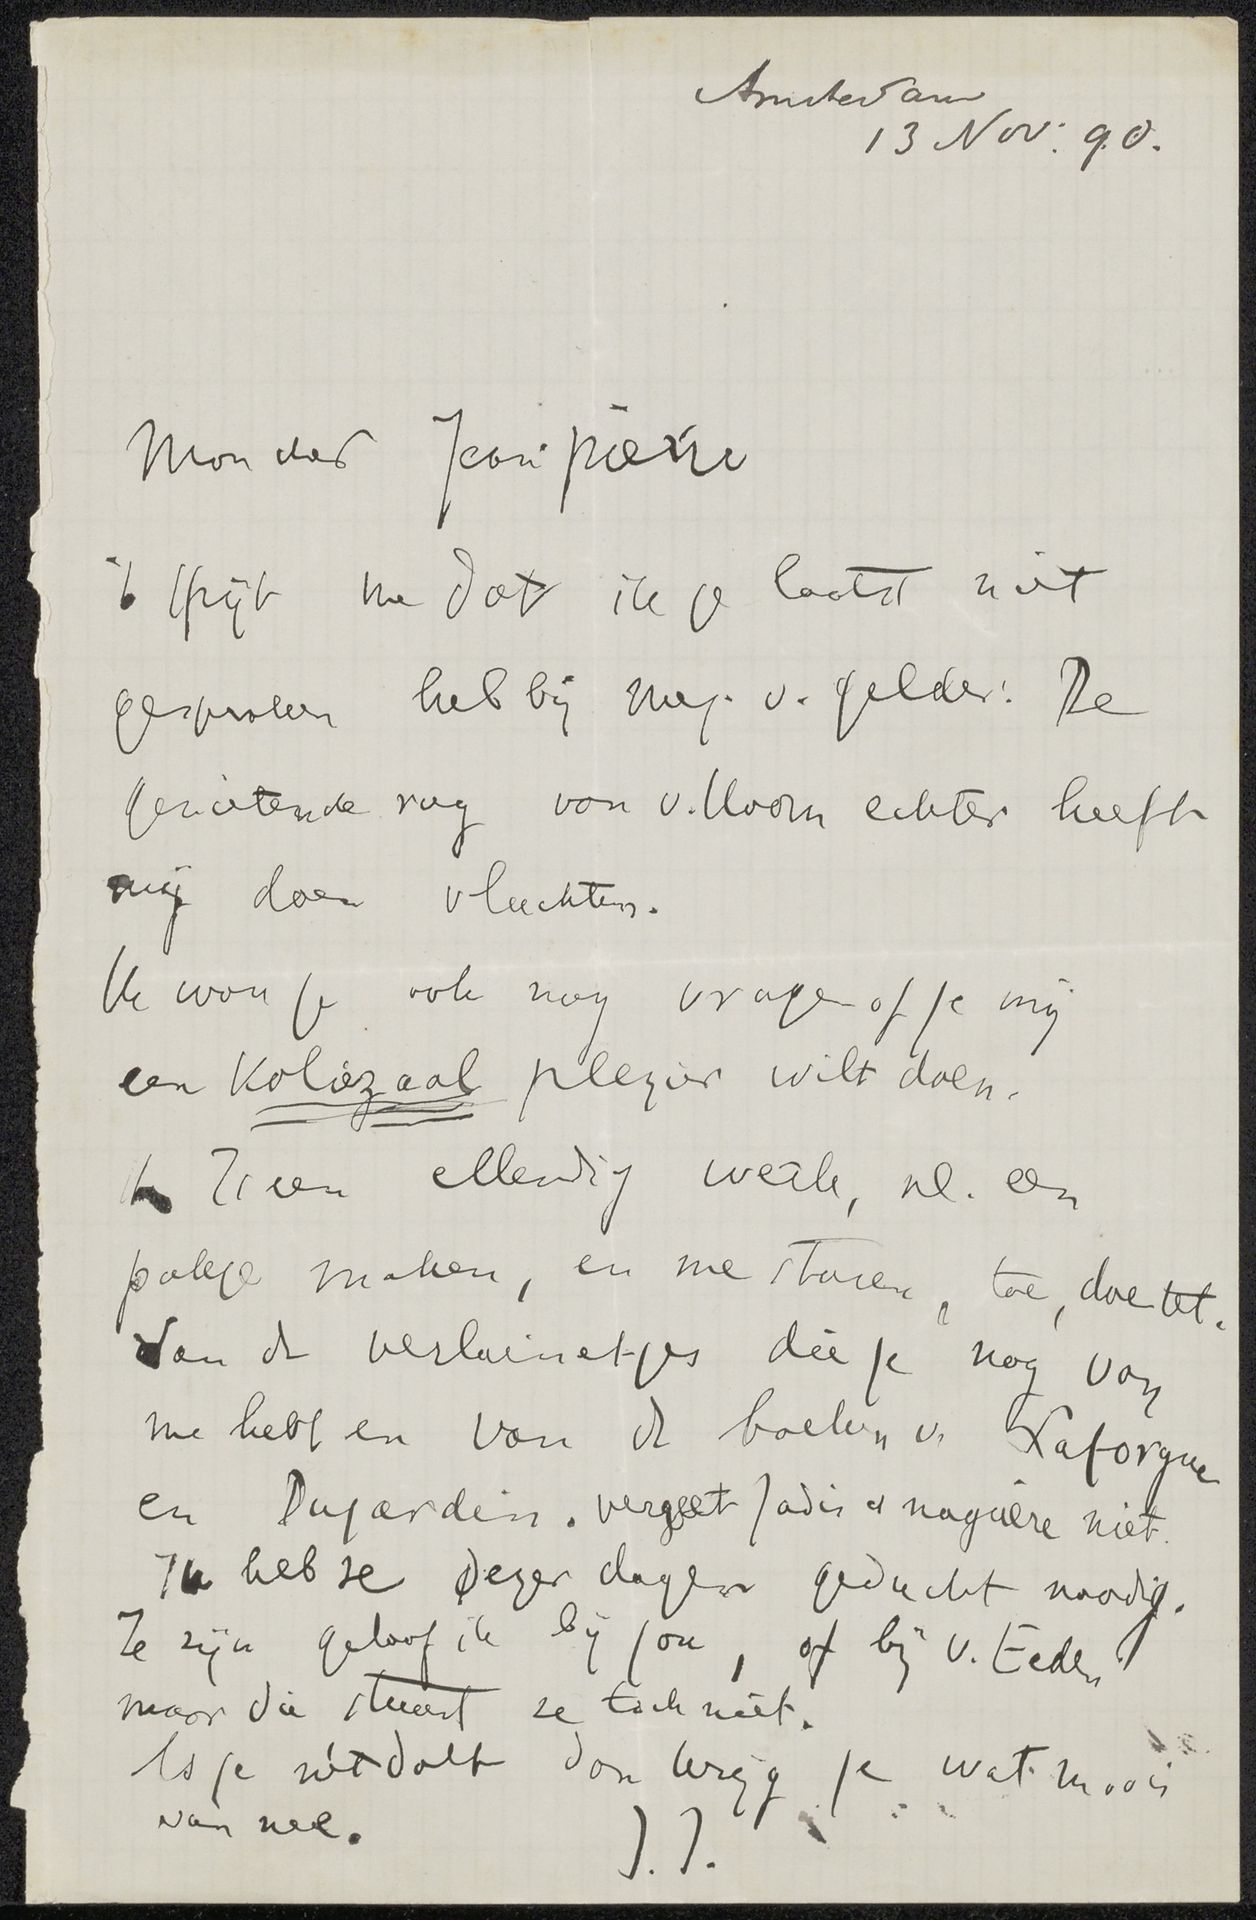 Amsterdam
13 Nov: 90.
Mon cher Jean pierre
't spijt me dat ik je laatst niet
gesproken heb bij mej. v. gelder: De
genietende rug van v. Hoorn echter heeft
mij doen vluchten.
Ik wou je ook nog vragen of je mij
een kolossaal plezier wilt doen.
't Is een ellendig werk, nl. een
pakje maken, en me sturen, toe, doe het.
Van de verlainetjes die je nog van
me hebt en van de boeken v. Laforgue
en Dujardin. vergeet Jadis et naguère niet.
Ik heb ze dezer dagen geducht noodig.
Ze zijn geloof ik bij jou, of bij v. Eeden
maar die stuurt ze toch niet.
Als je het doet dan krijg je wat moois
van mee.
J.J.